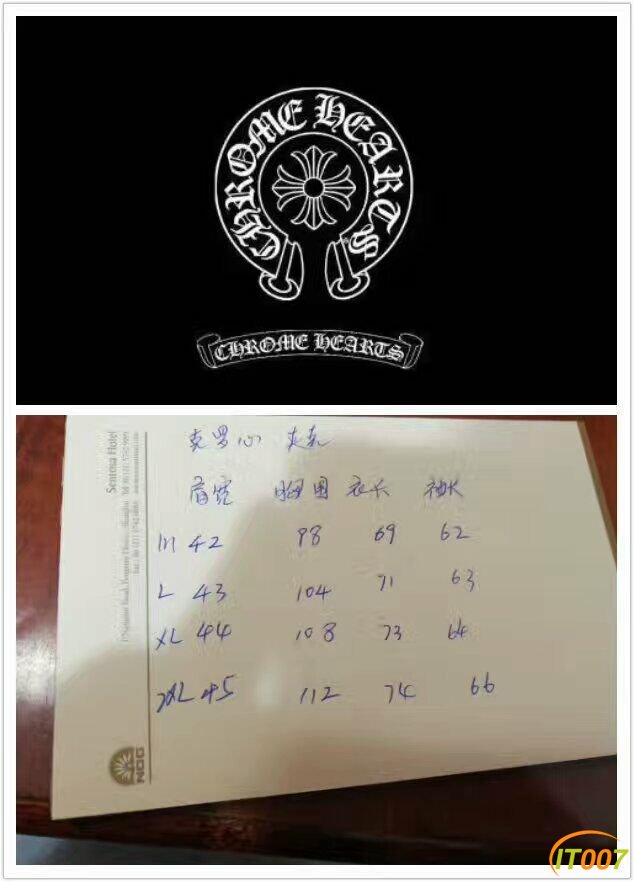 CHROME HEARTS
CHROME HEARTS
克罗心 夹克
肩宽 胸围 衣长 袖长
M 42 98 69 62
L 43 104 71 63
XL 44 108 73 64
2XL 45 112 74 66
Sentosa Hotel
NGG
IT007